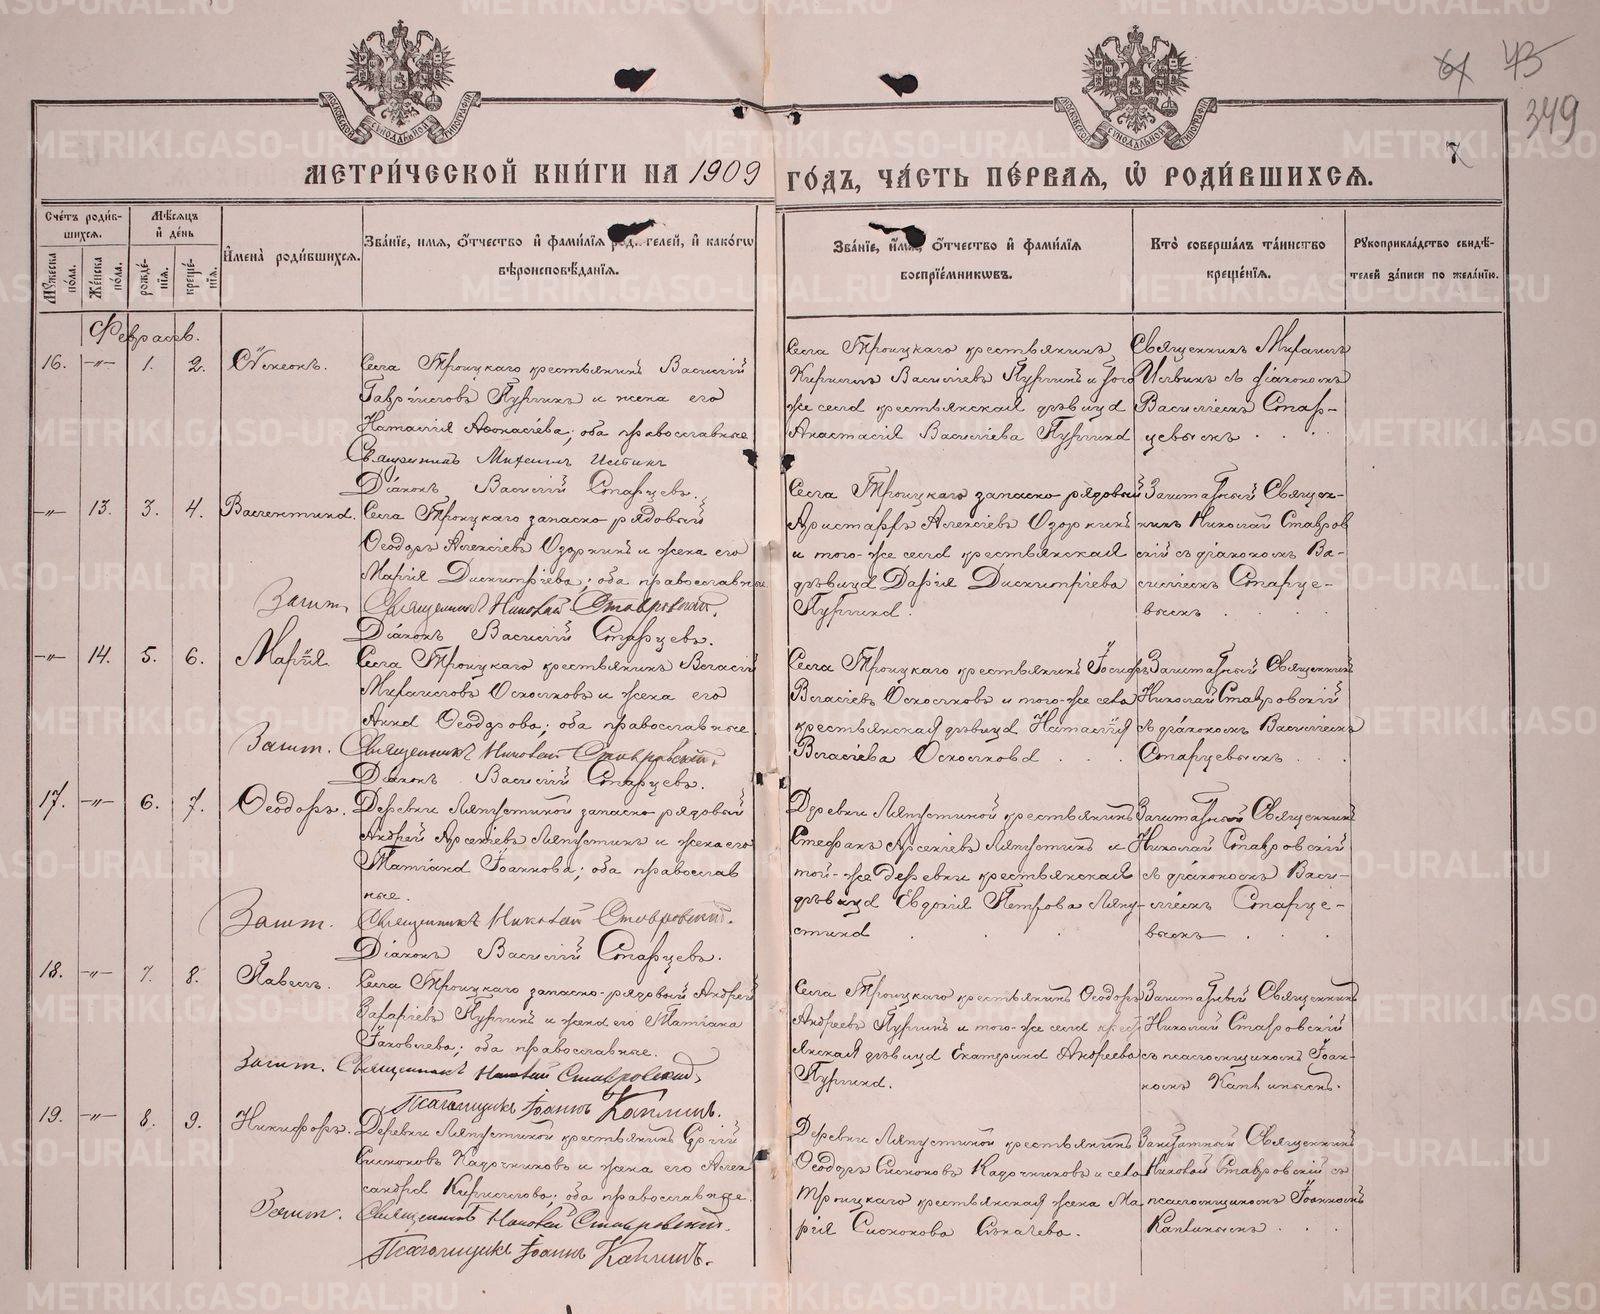 75
349
МОСКОВСКОЙ СѴНОДАЛЬНОЙ ТИПОГРАФІИ
МОСКОВСКОЙ СѴНОДАЛЬНОЙ ТИПОГРАФІИ
МЕТРИ́ЧЕСКОЙ КНИ́ГИ НА 1909 ГО́ДЪ, ЧА́СТЬ ПЕ́РВАЯ, Ѽ РОДИ́ВШИХСЯ.
Сче́тъ роди́в-
шихся.
Мѣ́сяцъ
и҆ де́нь
Мꙋ́жеска по́ла.
Же́нска по́ла.
рожде́-
нїя.
креще́-
нїя.
И҆мена̀ роди́вшихся.
Зва́нїе, и҆мя, ѻ҆́тчество и҆ фами́лїя роди́телей, и҆ како́гѡ
вѣроисповѣ́данїя.
Зва́нїе, и҆́мя, ѻ҆́тчество и҆ фами́лїя
воспрїе́мникѡвъ.
Кто̀ соверша́лъ та́инство
креще́нїя.
Рꙋкоприкла́дство свидѣ́-
телей за́писи по жела́нїю.
Февраль.
16. -„- 1. 2. Сѵмеонъ.
Села Троицкаго крестьянинъ Василій
Гавріиловъ Пургинъ и жена его
Наталія Аѳонасіева; оба православные
Священникъ Михаилъ
Діаконъ Василій Старцевъ.
Села Троицкаго крестьянинъ
Кириллъ Василіевъ Пургинъ и того
же села крестьянская дѣвица
Анастасія Василіева Пургина
Священникъ Михаилъ
съ діакономъ
Василіемъ Стар-
цевымъ . .
-„- 13. 3. 4. Валентина.
Села Троицкаго запасно рядовый
Ѳеодоръ Алексіевъ Озорнинъ и жена его
Марія Димитріева; оба православны
Зашт. Священникъ Николай Ставровскій.
Діаконъ Василій Старцевъ.
Села Троицкаго запасно рядовый
Аристархъ Алексіевъ Озорнинъ
и того-же села крестьянская
дѣвица Дарія Димитріева
Пургина.
Заштатный Священ-
никъ Николай Ставров
скій съ діакономъ Ва-
силіемъ Старце-
вымъ . .
-„- 14. 5. 6. Марія.
Села Троицкаго крестьянинъ Власій
Михаиловъ Осколковъ и жена его
Анна Ѳеодорова; оба православные.
Зашт. Священникъ Николай Ставровскій.
Діаконъ Василій Старцевъ.
Села Троицкаго крестьянинъ Іосифъ
Власіевъ Осколковъ и того-же села
крестьянская дѣвица Наталія
Власіева Осколкова . .
Заштатный Священникъ
Николай Ставровскій
съ діакономъ Василіемъ
Старцевымъ . .
17. -„- 6. 7. Ѳеодоръ.
Деревни Ляпустиной запасно рядовый
Андрей Арсеніевъ Ляпустинъ и жена его
Татіана Іоаннова; оба православ
ные.
Зашт. Священникъ Николай Ставровскій.
Діаконъ Василій Старцевъ.
Деревни Ляпустиной крестьянинъ
Стефанъ Арсеніевъ Ляпустинъ и
той-же деревни крестьянская
дѣвица Евдокія Петрова Ляпу-
стина . .
Заштатный Священникъ
Николай Ставровскій
съ діакономъ Васи-
ліемъ Старце-
вымъ . .
18. -„- 7. 8. Павелъ.
Села Троицкаго запасно-рядовый Андрей
Захаріевъ Пургинъ и жена его Татіана
Іаковлева; оба православные.
Зашт. Священникъ Николай Ставровскій.
Псаломщикъ Іоаннъ Каплинъ.
Села Троицкаго крестьянинъ Ѳеодоръ
Андреевъ Пургинъ и того-же села крест
янская дѣвица Екатерина Андреева
Пургина.
Заштатный Священникъ
Николай Ставровскій
съ псаломщикомъ Іоан-
номъ Каплинымъ.
19. -„- 8. 9. Никифоръ.
Деревни Ляпустиной крестьянинъ
Симоновъ Кадочниковъ и жена его Алек
сандра Кириллова; оба православные.
Зашт. Священникъ Николай Ставровскій.
Псаломщикъ Іоаннъ Каплинъ.
Деревни Ляпустиной крестьянинъ
Ѳеодоръ Симоновъ Кадочниковъ и села
Троицкаго крестьянская жена Ма-
рія Симонова
Заштатный Священникъ
Николай Ставровскій съ
псаломщикомъ Іоанномъ
Каплинымъ . .
METRIKI.GASO-URAL.RU